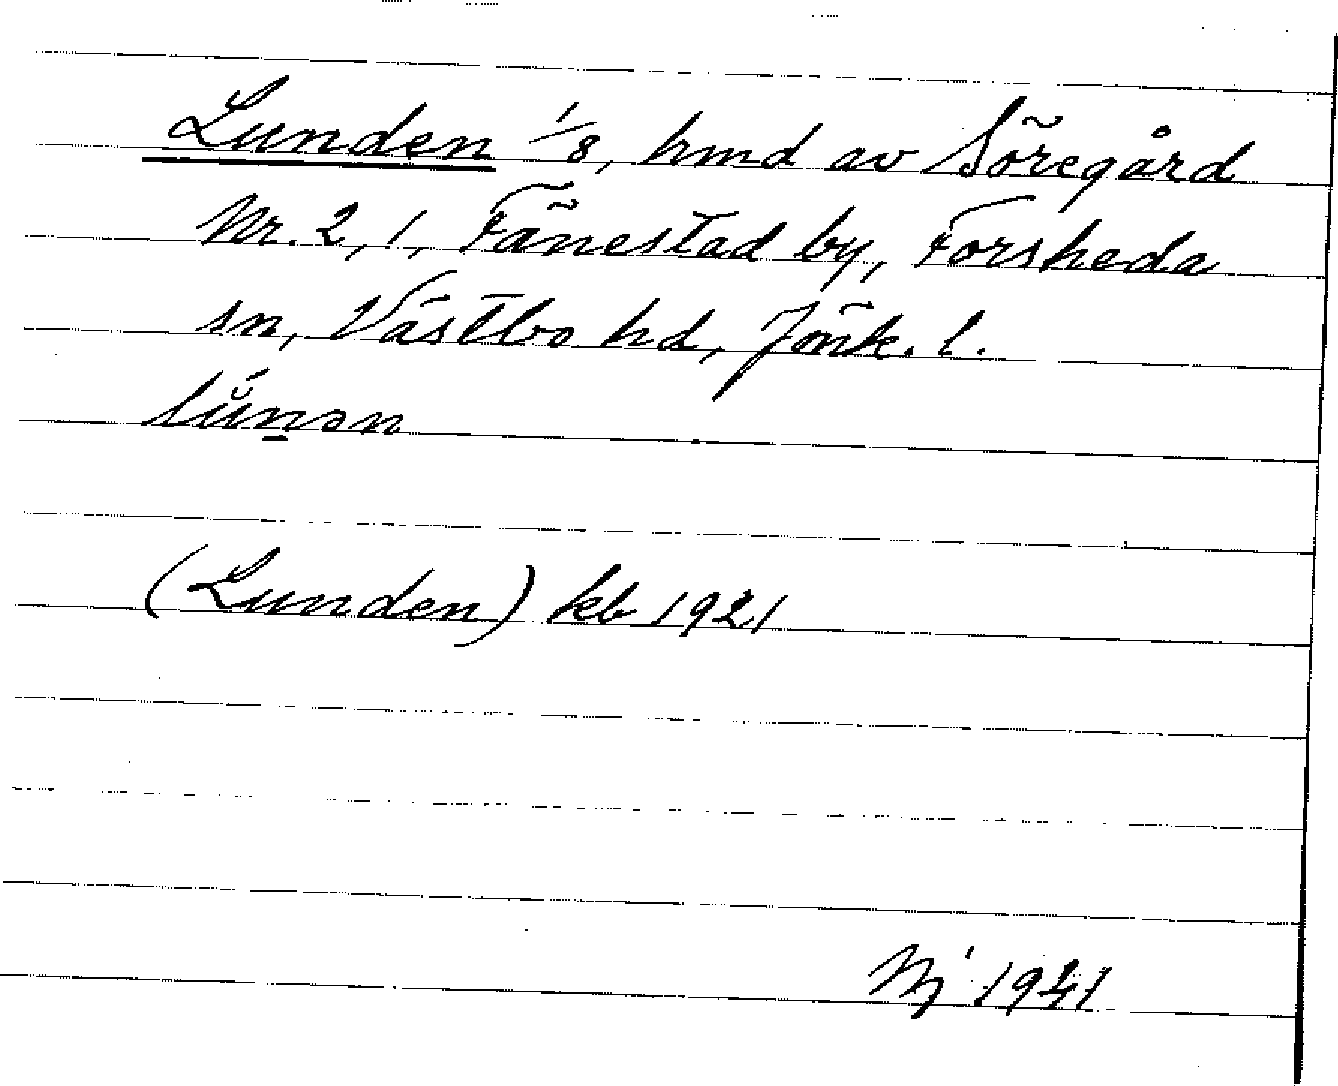 Lunden 1/8, hmd av Söregård
Nr. 2, 1, Fänestad by, Forsheda
sn, Västbo hd, Jönk. l.
(Lunden) kb 1921
Nj 1941